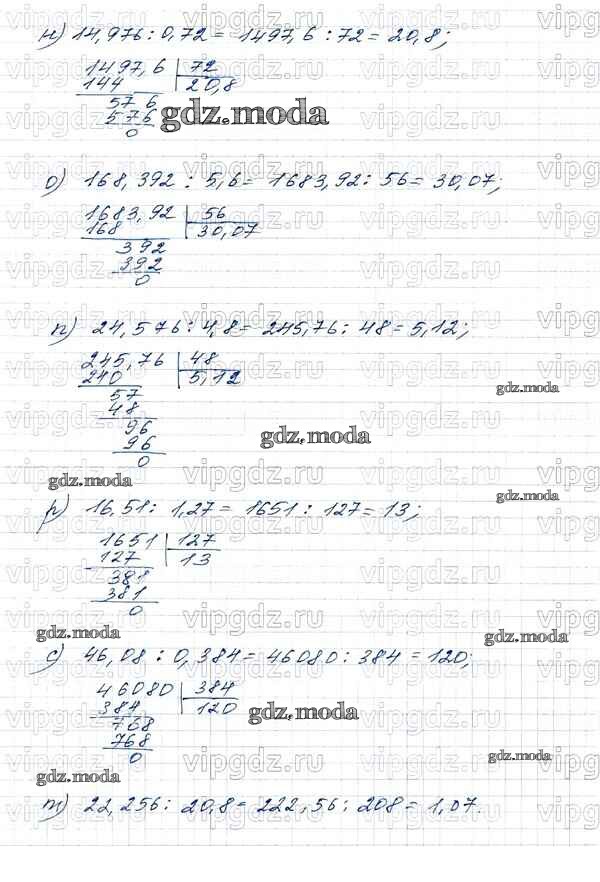 н) 14,976 : 0,72 = 1497,6 : 72 = 20,8;
1497,6 72
144 20,8
57 6
576
0
gdz.moda
о) 168,392 : 5,6 = 1683,92 : 56 = 30,07;
1683,92 56
168 30,07
392
392
0
п) 24,576 : 4,8 = 245,76 : 48 = 5,12;
245,76 48
240 5,12
57
48
96
96
0
gdz.moda
gdz.moda
gdz.moda
gdz.moda
р) 16,51 : 1,27 = 1651 : 127 = 13;
1651 127
127 13
381
381
0
gdz.moda
gdz.moda
с) 46,08 : 0,384 = 46080 : 384 = 120;
46080 384
384 120
768
768
0
gdz.moda
gdz.moda
gdz.moda
т) 22,256 : 20,8 = 222,56 : 208 = 1,07.
vipgdz.ru